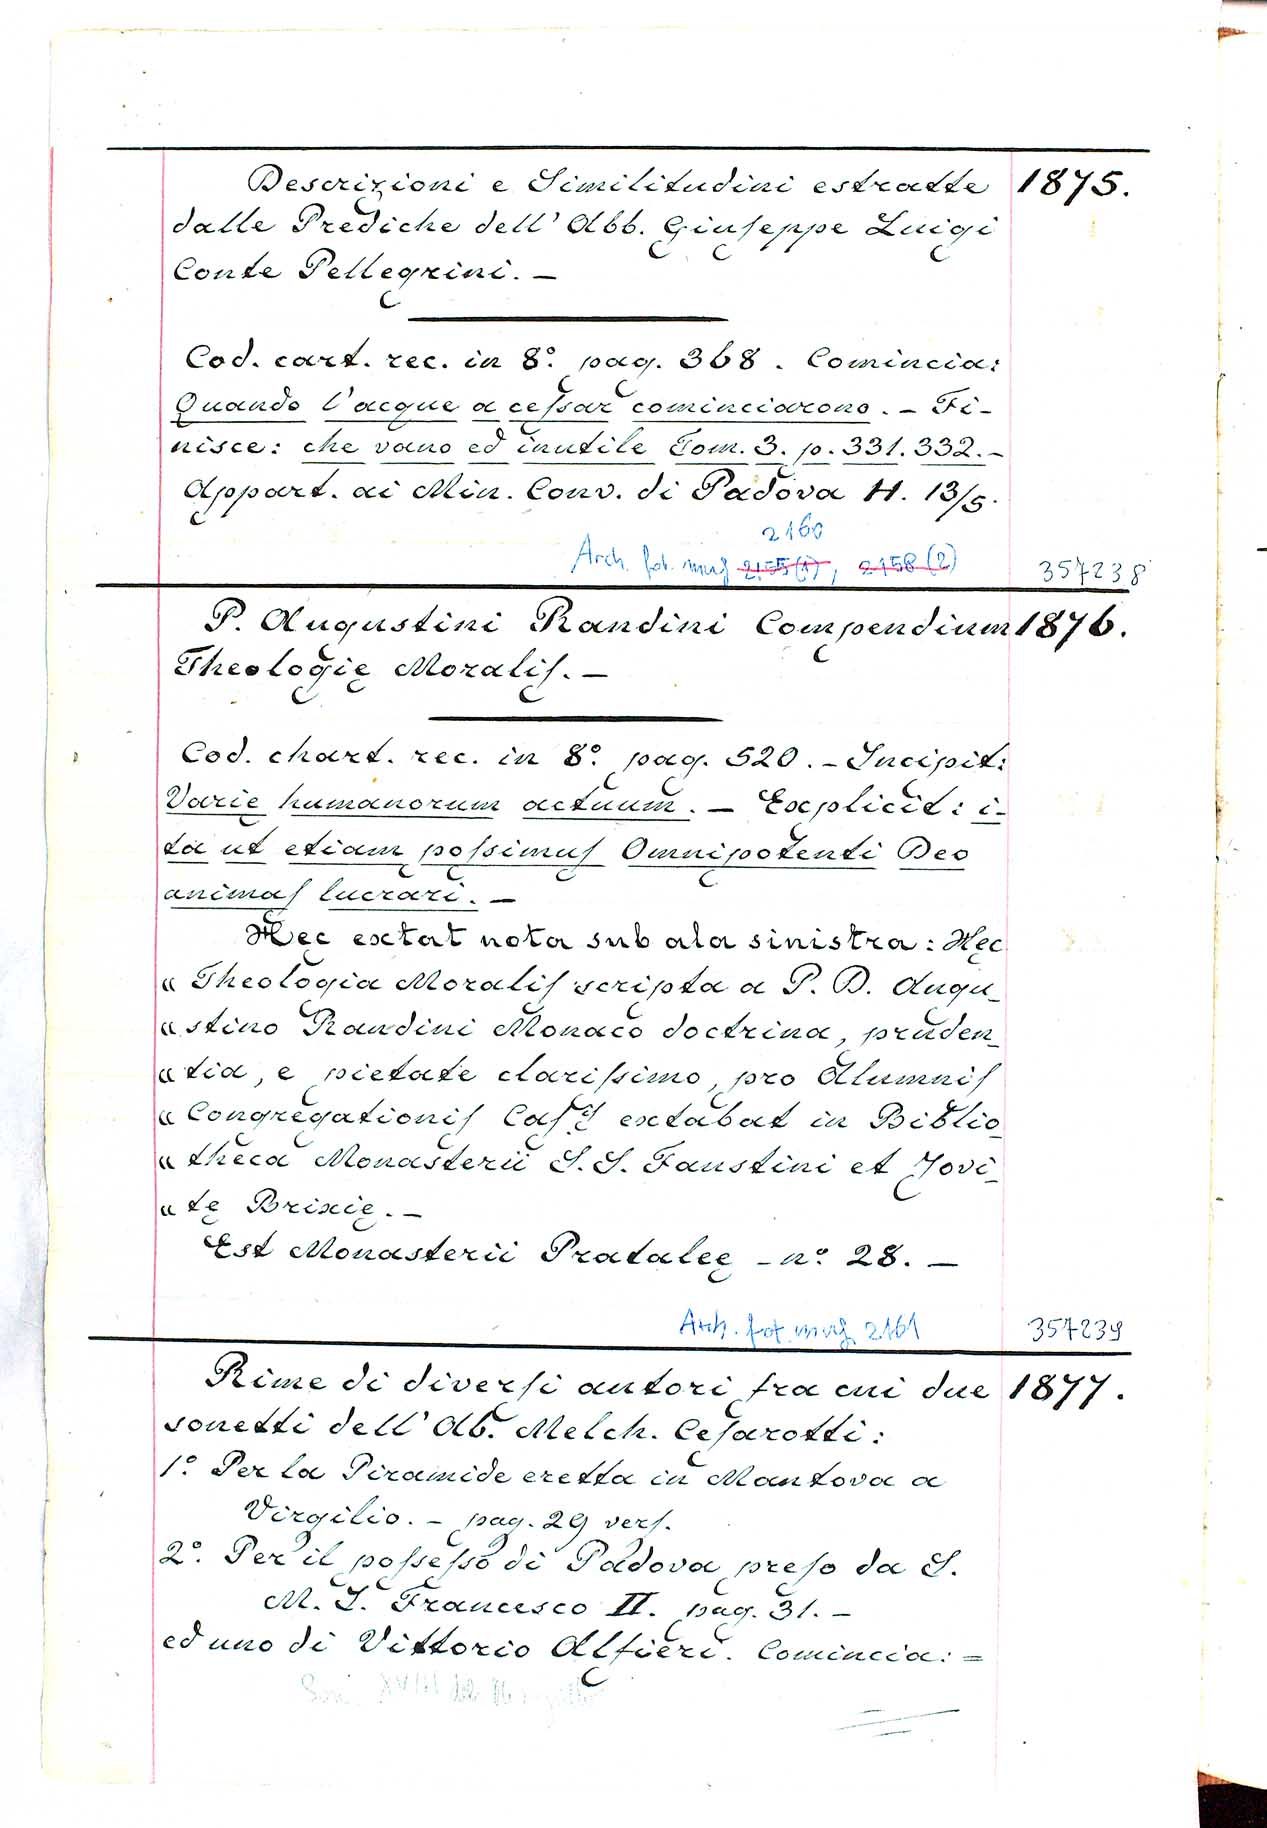 Descrizioni e Similitudini estratte 1875.
dalle Prediche dell' Abb. Giuseppe Luigi
Conte Pellegrini. —
Cod. cart. rec. in 8º. pag. 368. Comincia:
Quando l'acque a ceſsar cominciarono. — Fi-
nisce: che vano ed inutile Tom. 3. p. 331. 332. —
Appart. ai Min. Conv. di Padova H. 13/5.
2160
Arch. fot. marc. 2155 (1), 2158 (2) 357238
P. Augustini Randini Compendium 1876.
Theologię Moraliſ. —
Cod. chart. rec. in 8º. pag. 520. — Incipit:
Varię humanorum actuum. — Explicit: i-
ta ut etiam poſsimuſ Omnipotenti Deo
animaſ lucrari. —
Hęc extat nota sub ala sinistra: Hęc
" Theologia Moraliſ scripta a P. D. Augu-
" stino Randini Monaco doctrina, pruden-
" tia, e pietate clariſsimo, pro Alumniſ
" Congregationiſ Caſ.ſ extabat in Biblio-
" theca Monasterii S. S. Faustini et Jovi-
" tę Brixię. —
Est Monasterii Pratalee - nº. 28. —
Arch. fot. marc. 2161 357239
Rime di diverſi autori fra cui due 1877.
sonetti dell' Ab. Melch. Ceſarotti:
1º. Per la Piramide eretta in Mantova a
Virgilio. — pag. 29 verſ.
2º. Per il poſseſso di Padova preſo da S.
M. I. Francesco II. pag. 31. —
ed uno di Vittorio Alfieri. Comincia: =